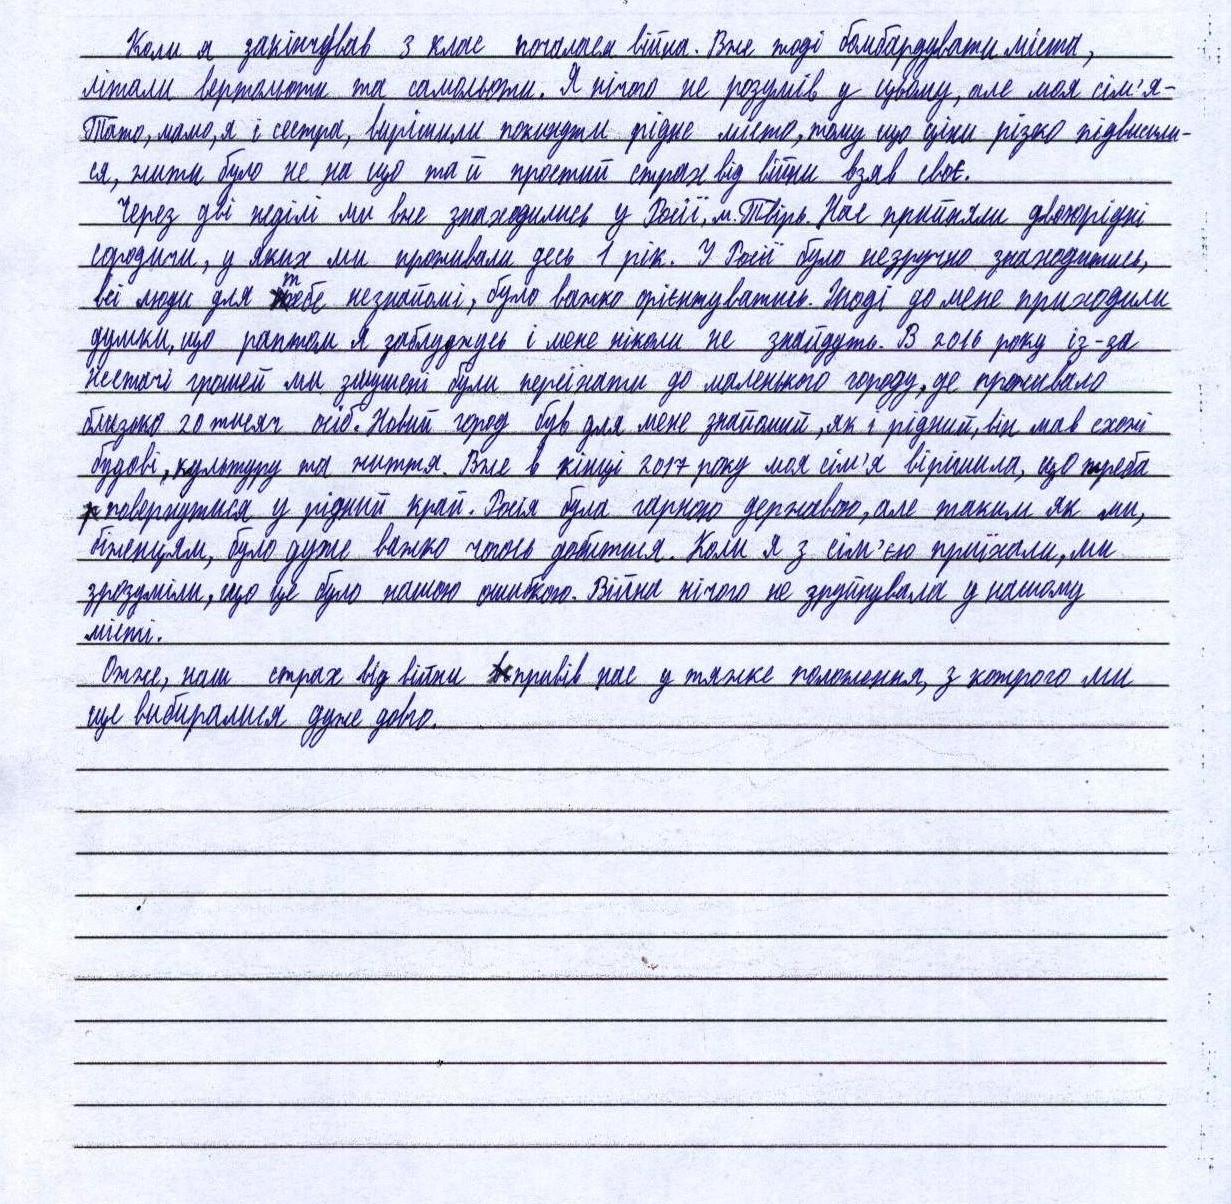 Коли я закінчував 3 клас почалася війна. Вже тоді бомбардувати міста,
літали вертольоти та самольоти. Я нічого не розумів у цьому, але моя сім'я-
Тато, мама, я і сестра, вирішили покинути рідне місто, тому що ціни різко підвисили-
ся, жити було не на що та й простий страх від війни взяв своє.
Через дві неділі ми вже знаходились у Росії, м. Твірь. Нас прийняли двоюрідні
сородичи, у яких ми проживали десь 1 рік. У Росії було незручно знаходитись,
всі люди для тебе незнайомі, було важко орієнтуватись. Іноді до мене приходили
думки, що раптом я заблуджусь і мене ніколи не знайдуть. В 2016 року із-за
нестачі грошей ми змушені були переїхати до маленького городу, де проживало
близько 20 тисяч осіб. Новий город був для мене знайомий, як і рідний, він мав схожі
будові, культуру та життя. Вже в кінці 2017 року моя сім'я вірішила, що треба
повернутися у рідний край. Росія була гарною державою, але таким як ми,
біженцям, було дуже важко чогось добитися. Коли я з сім'єю приїхали, ми
зрозуміли, що це було нашою ошибкою. Війна нічого не зруйнувала у нашому
місті.
Отже, наш страх від війни привів нас у тяжке положення, з котрого ми
ще вибиралися дуже довго.